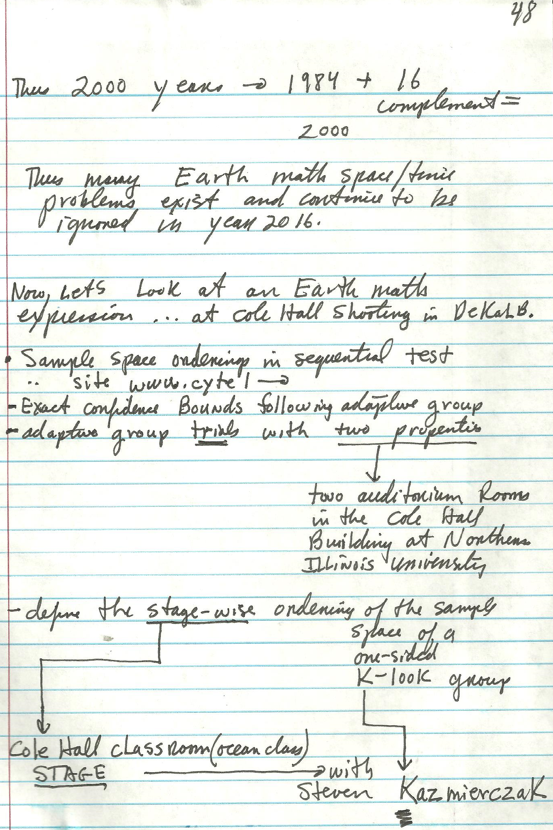 48
Thus 2000 years → 1984 + 16
complement =
2000
Thus many Earth math space/time
problems exist and continue to be
ignored in year 2016.
Now, Lets Look at an Earth math
expression ... at Cole Hall Shooting in DeKaLB.
• Sample space orderings in sequential test
.. site www.cyte1 →
- Exact confidence Bounds following adaptive group
- adaptive group trials with two properties
two auditorium Rooms
in the Cole Hall
Building at Northern
Illinois University
- define the stage-wise ordering of the sample
space of a
one-sided
K-look group
Cole Hall classroom (ocean class)
STAGE → with
Steven Kazmierczak